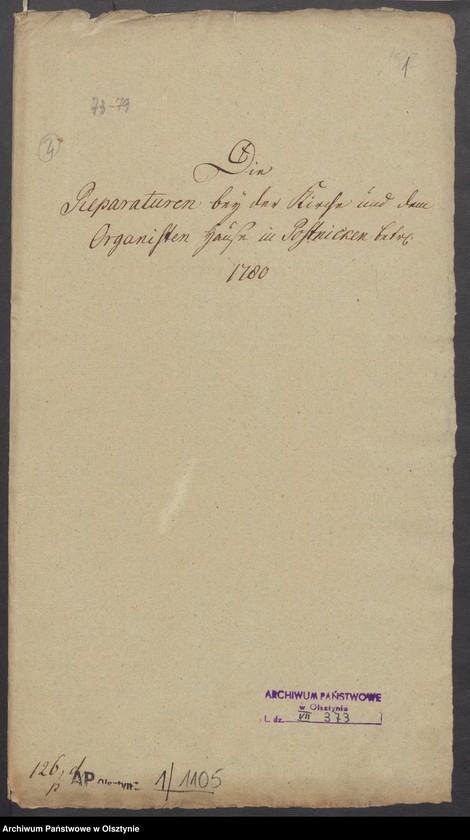 1
73-79
4
Die
Reparaturen bey der Kirche und dem
Organisten Hause in Postnicken betr.
1780
ARCHIWUM PAŃSTWOWE
w Olsztynie
L. dz. VII 373
126
AP Olsztyn 1/1105
Archiwum Państwowe w Olsztynie